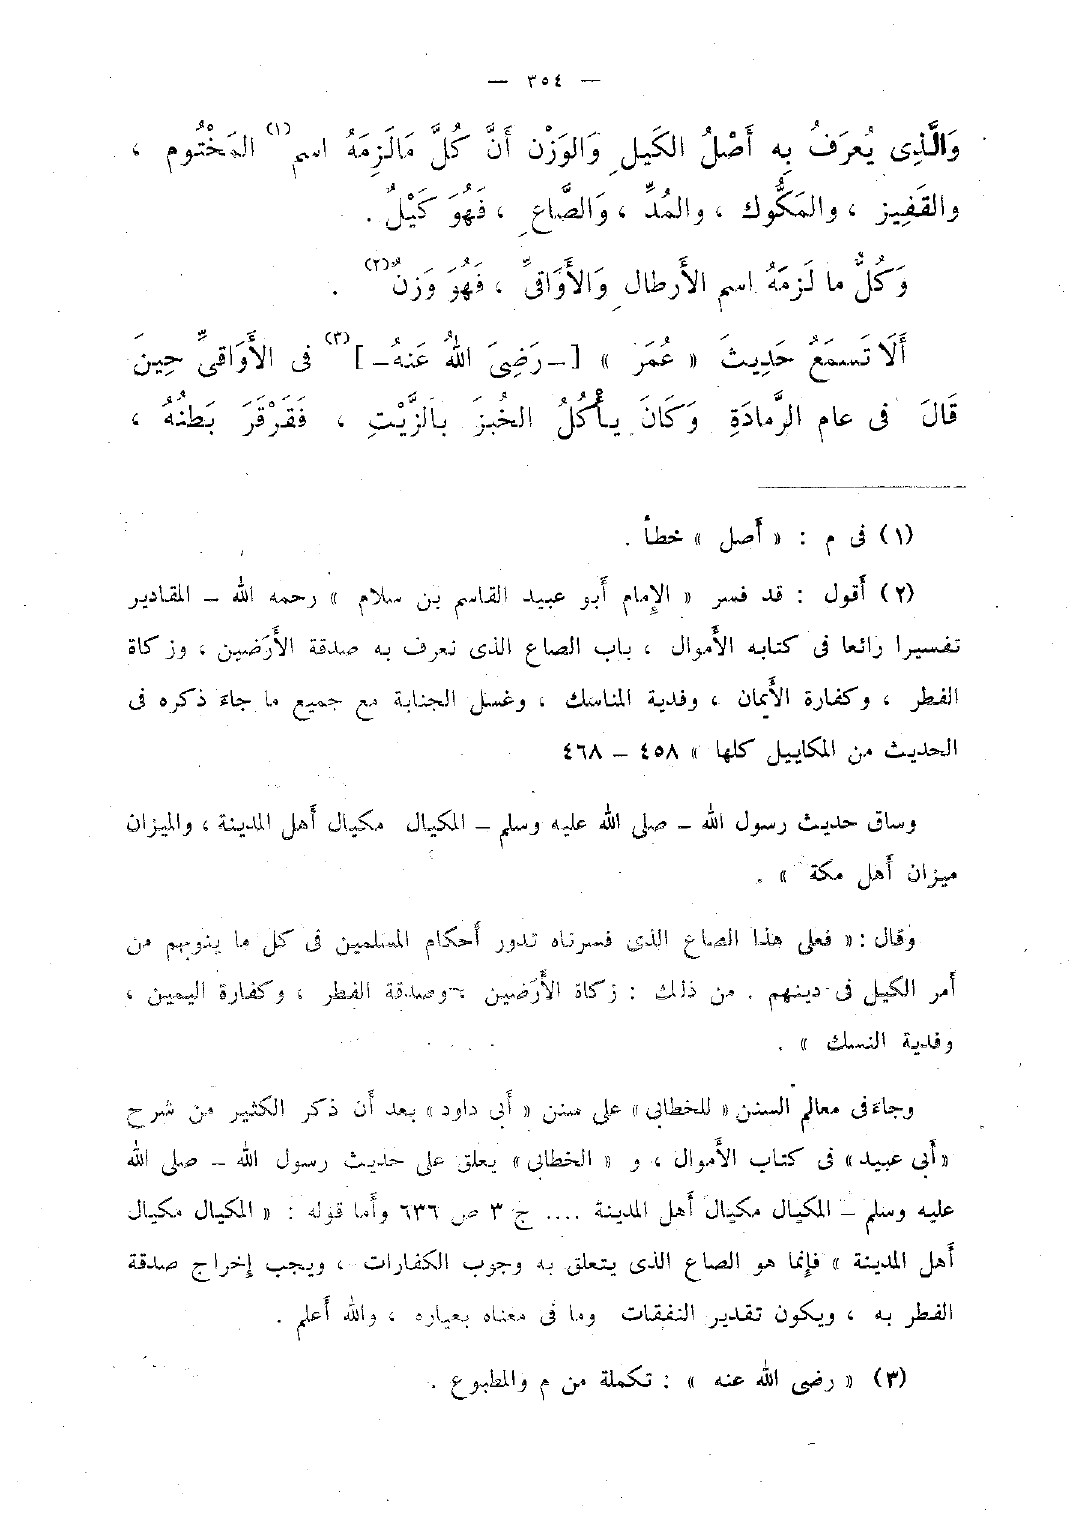 — ٣٥٤ —
وَالَّذِى يُعرَفُ بِه أَصْلُ الكَيلِ وَالوَزْن أَنَّ كُلَّ مَالَزِمَهُ اسم (١) المَخْتُوم ،
والقَفِيز ، والمَكُّوك ، والمُدِّ ، وَالصَّاعِ ، فَهُوَ كَيْلٌ .
وَكُلُّ ما لَزِمَهُ اسم الأَرطالِ وَالأَوَاقِىِّ ، فَهُوَ وَزنٌ (٢) .
أَلَا تَسمَعُ حَدِيثَ « عُمَرَ » [ـ رَضِىَ اللهُ عَنهُ ـ] (٣) فى الأَوَاقىِّ حِينَ
قَالَ فى عام الرَّمادَةِ وَكَانَ يأْكُلُ الخُبزَ بالزَّيْتِ ، فَقَرْقَرَ بَطنُهُ ،
(١) فى م : « أَصل » خطأ .
(٢) أَقول : قد فسر « الإِمام أَبو عبيد القاسم بن سلام » رحمه الله ـ المقادير
تفسيرا رائعا فى كتابه الأَموال ، باب الصاع الذى نعرف به صدقة الأَرَضين ، وزكاة
الفطر ، وكفارة الأَيمان ، وفدية المناسك ، وغسل الجنابة مع جميع ما جاءَ ذكره فى
الحديث من المكاييل كلها » ٤٥٨ ـ ٤٦٨
وساق حديث رسول الله ـ صلى الله عليه وسلم ـ المكيال مكيال أَهل المدينة ، والميزان
ميزان أَهل مكة » .
وقال : « فعلى هذا الصاع الذى فسرناه تدور أَحكام المسلمين فى كل ما ينوبهم من
أَمر الكيل فى دينهم . من ذلك : زكاة الأَرَضين ، وصدقة الفطر ، وكفارة اليمين ،
وفدية النسك » .
وجاءَ فى معالم السنن « للخطابى » على سنن « أَبى داود » بعد أَن ذكر الكثير من شرح
« أَبى عبيد » فى كتاب الأَموال ، و « الخطابى » يعلق على حديث رسول الله ـ صلى الله
عليه وسلم ـ المكيال مكيال أَهل المدينة .... ج ٣ ص ٦٣٦ وأَما قوله : « المكيال مكيال
أَهل المدينة » فإِنما هو الصاع الذى يتعلق به وجوب الكفارات ، ويجب إِخراج صدقة
الفطر به ، ويكون تقدير النفقات وما فى معناه بعياره ، والله أَعلم .
(٣) « رضى الله عنه » : تكملة من م والمطبوع .